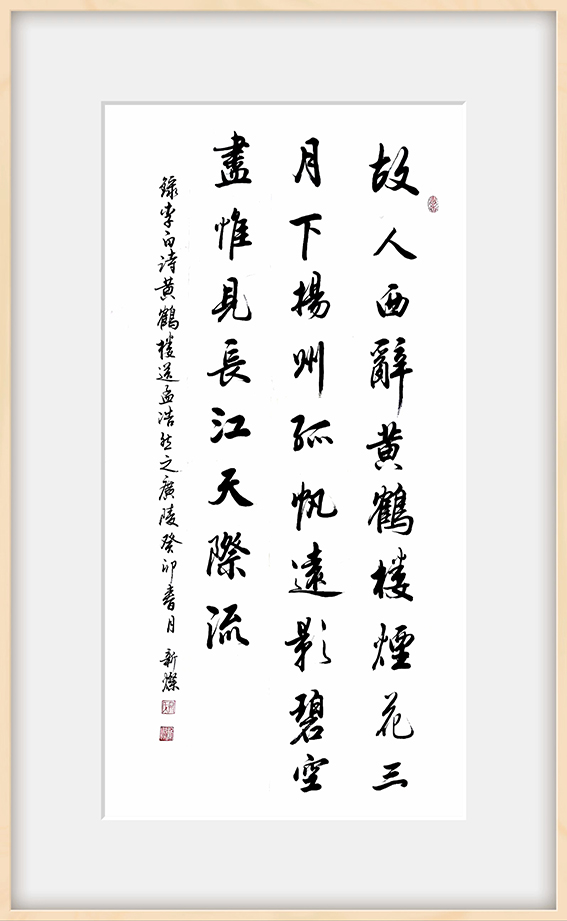 故人西辭黄鶴楼煙花三
月下揚州孤帆遠影碧空
盡惟見長江天際流
録李白诗黄鶴楼送孟浩然之廣陵癸卯春月新燦